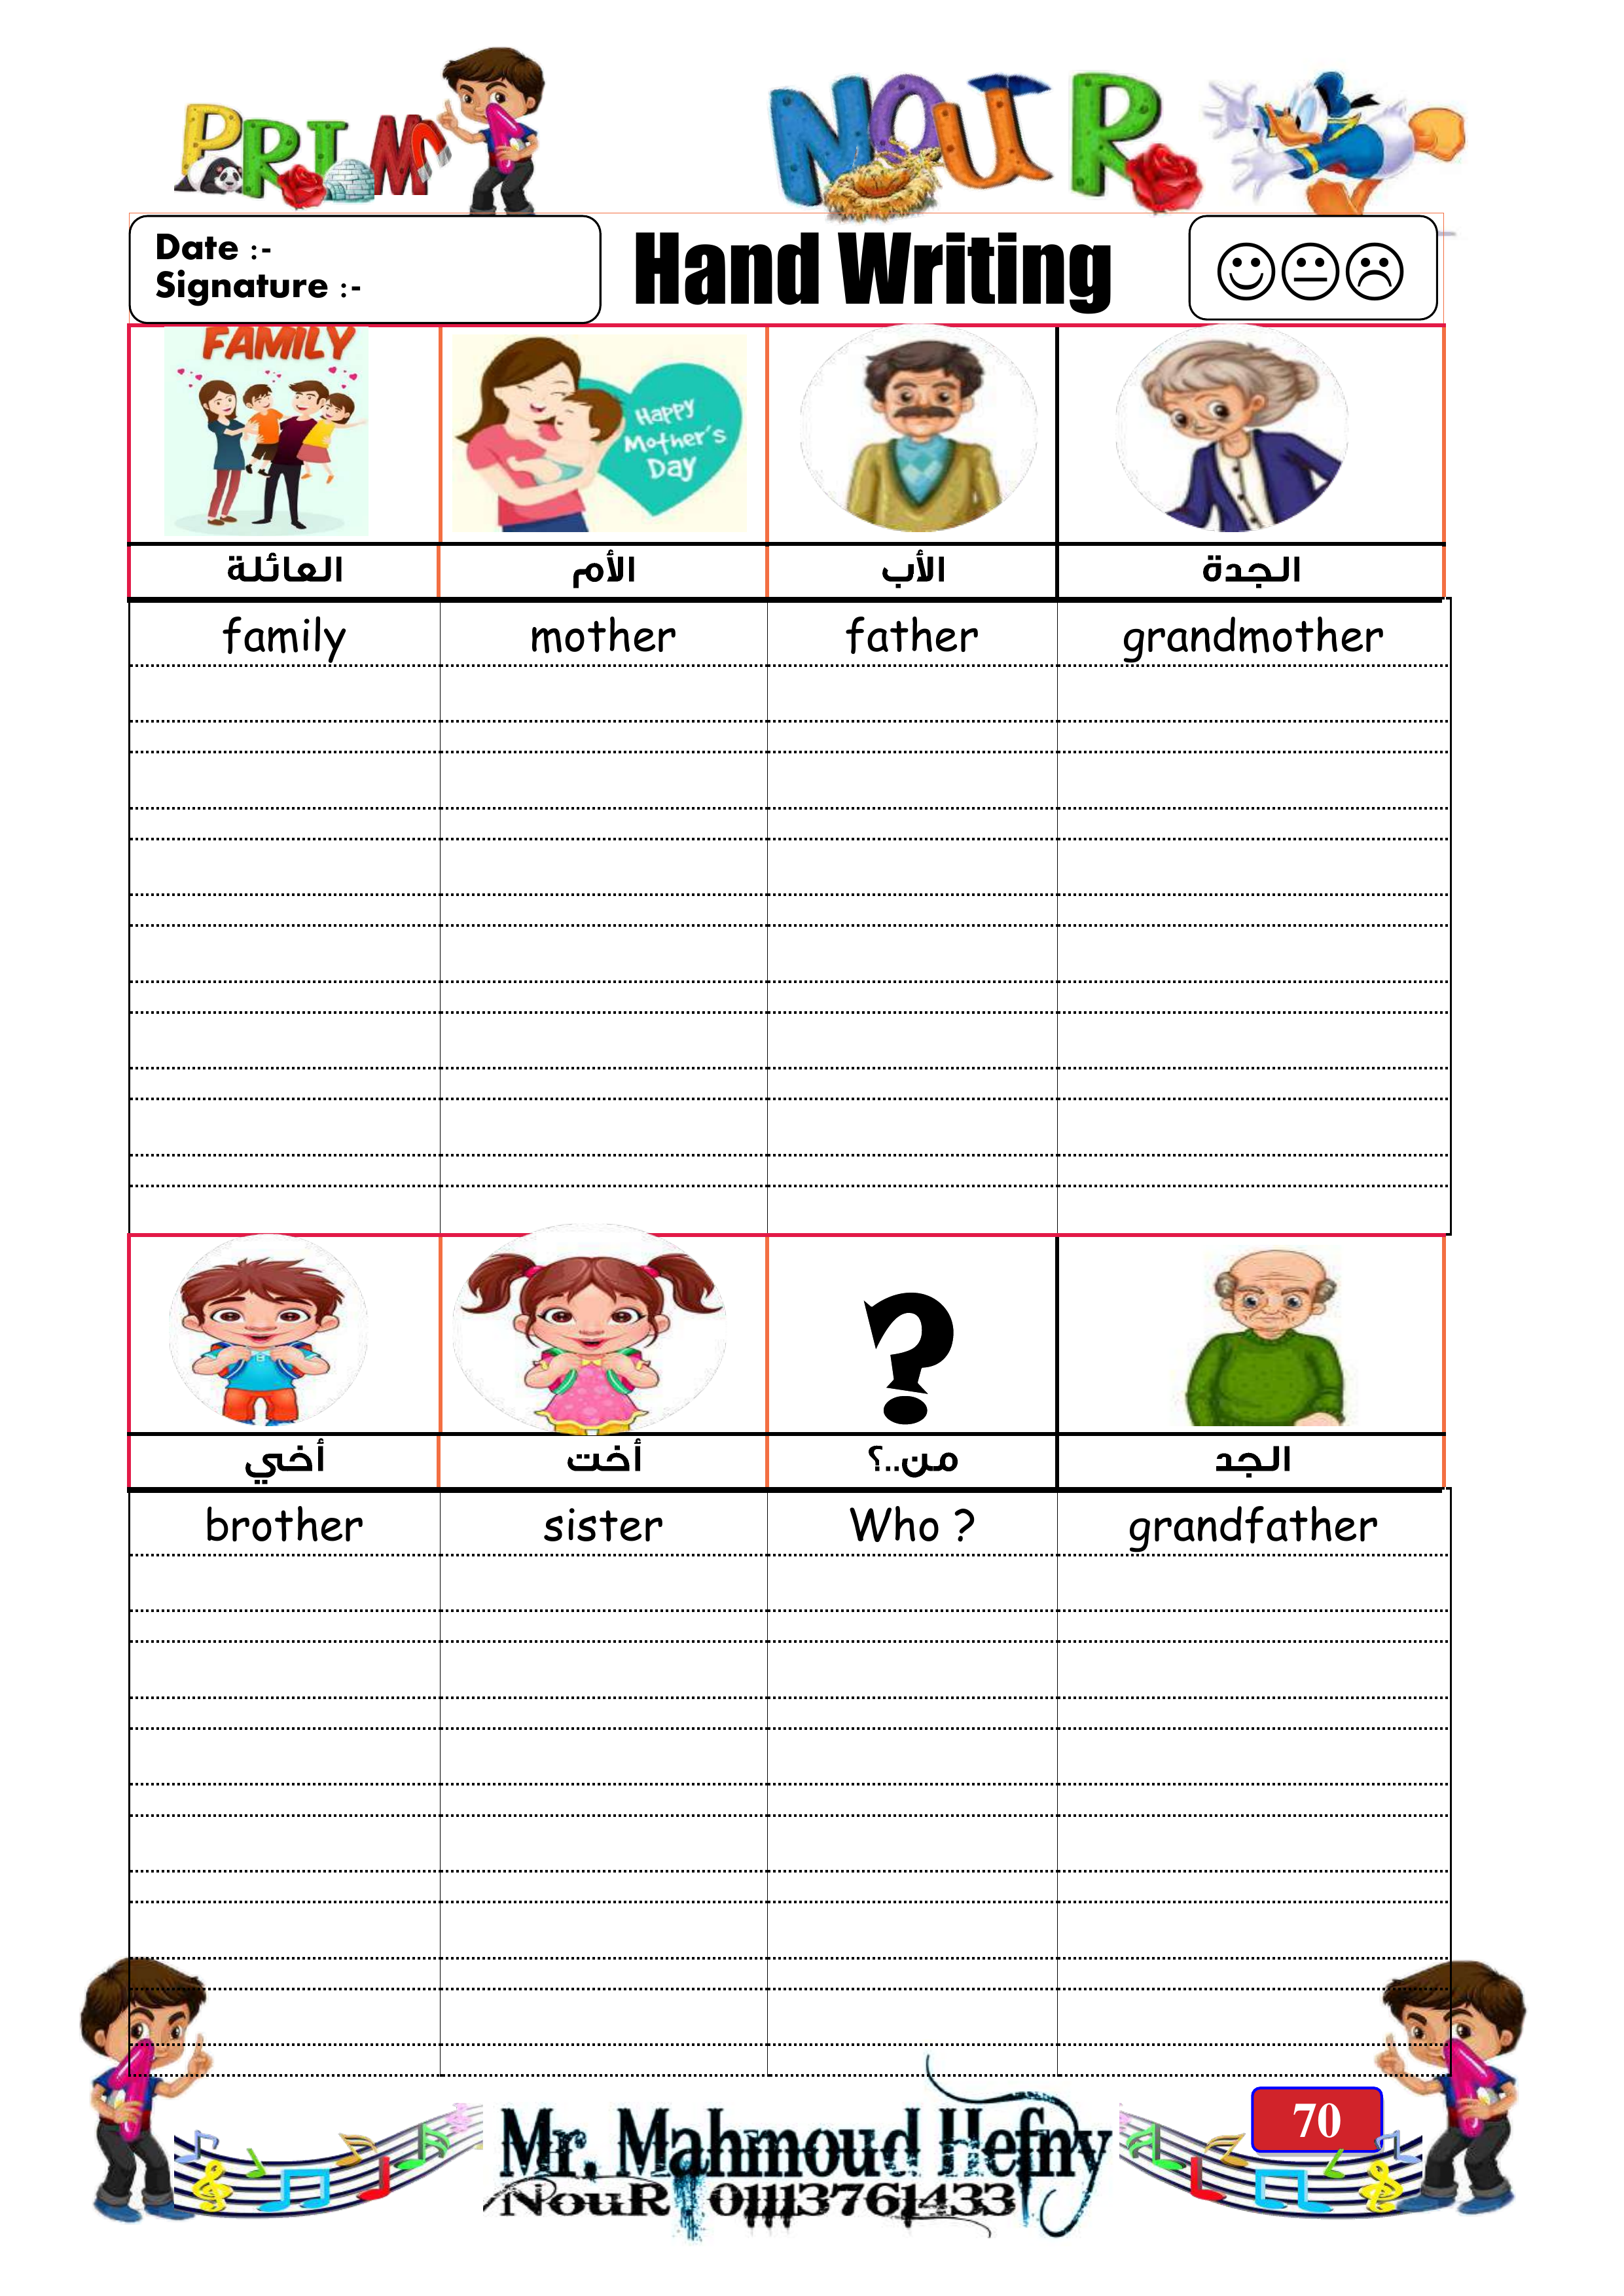 PRIM 1 NOUR
Date :-
Signature :-
Hand Writing
FAMILY
Happy
Mother's
Day
العائلة الأم الأب الجدة
family mother father grandmother
?
أخي أخت من..؟ الجد
brother sister Who ? grandfather
70
Mr. Mahmoud Hefny
NouR 01113761433